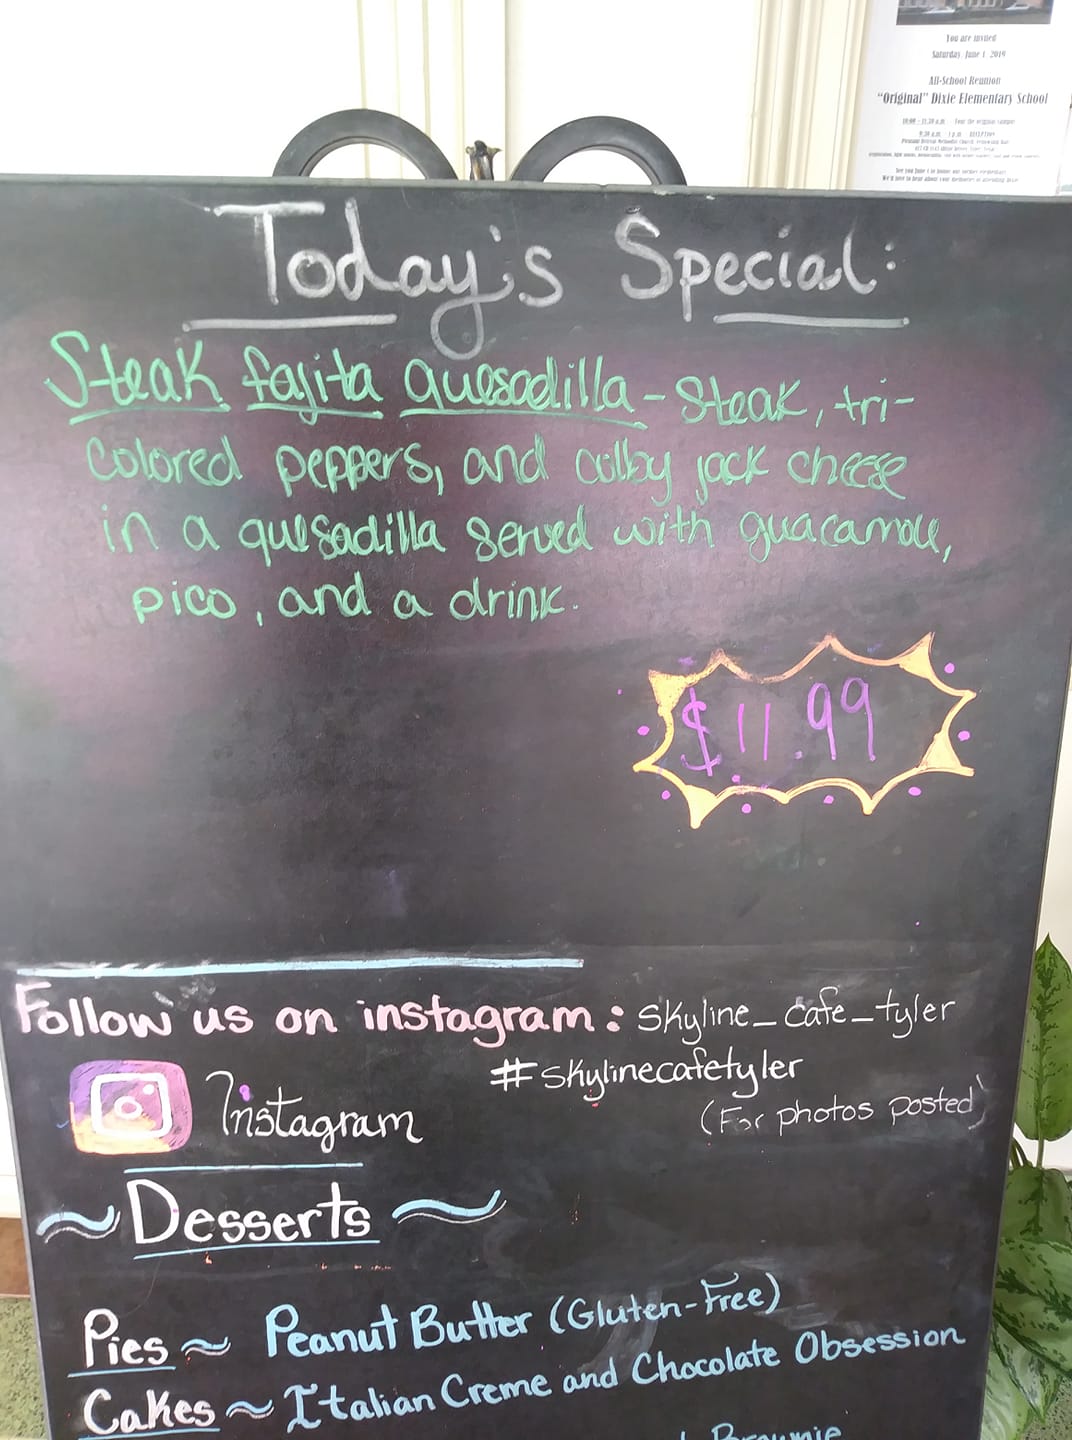 You are invited
Saturday, June 1, 2019
All-School Reunion
"Original" Dixie Elementary School
Today's Special:
Steak fajita quesadilla - Steak, tri-
colored peppers, and colby jack cheese
in a quesadilla served with guacamole,
pico, and a drink.
$11.99
Follow us on instagram: skyline_cafe_tyler
#skylinecafetyler
(For photos posted)
Instagram
~Desserts~
Pies ~ Peanut Butter (Gluten-Free)
Cakes ~ Italian Creme and Chocolate Obsession
Brownie